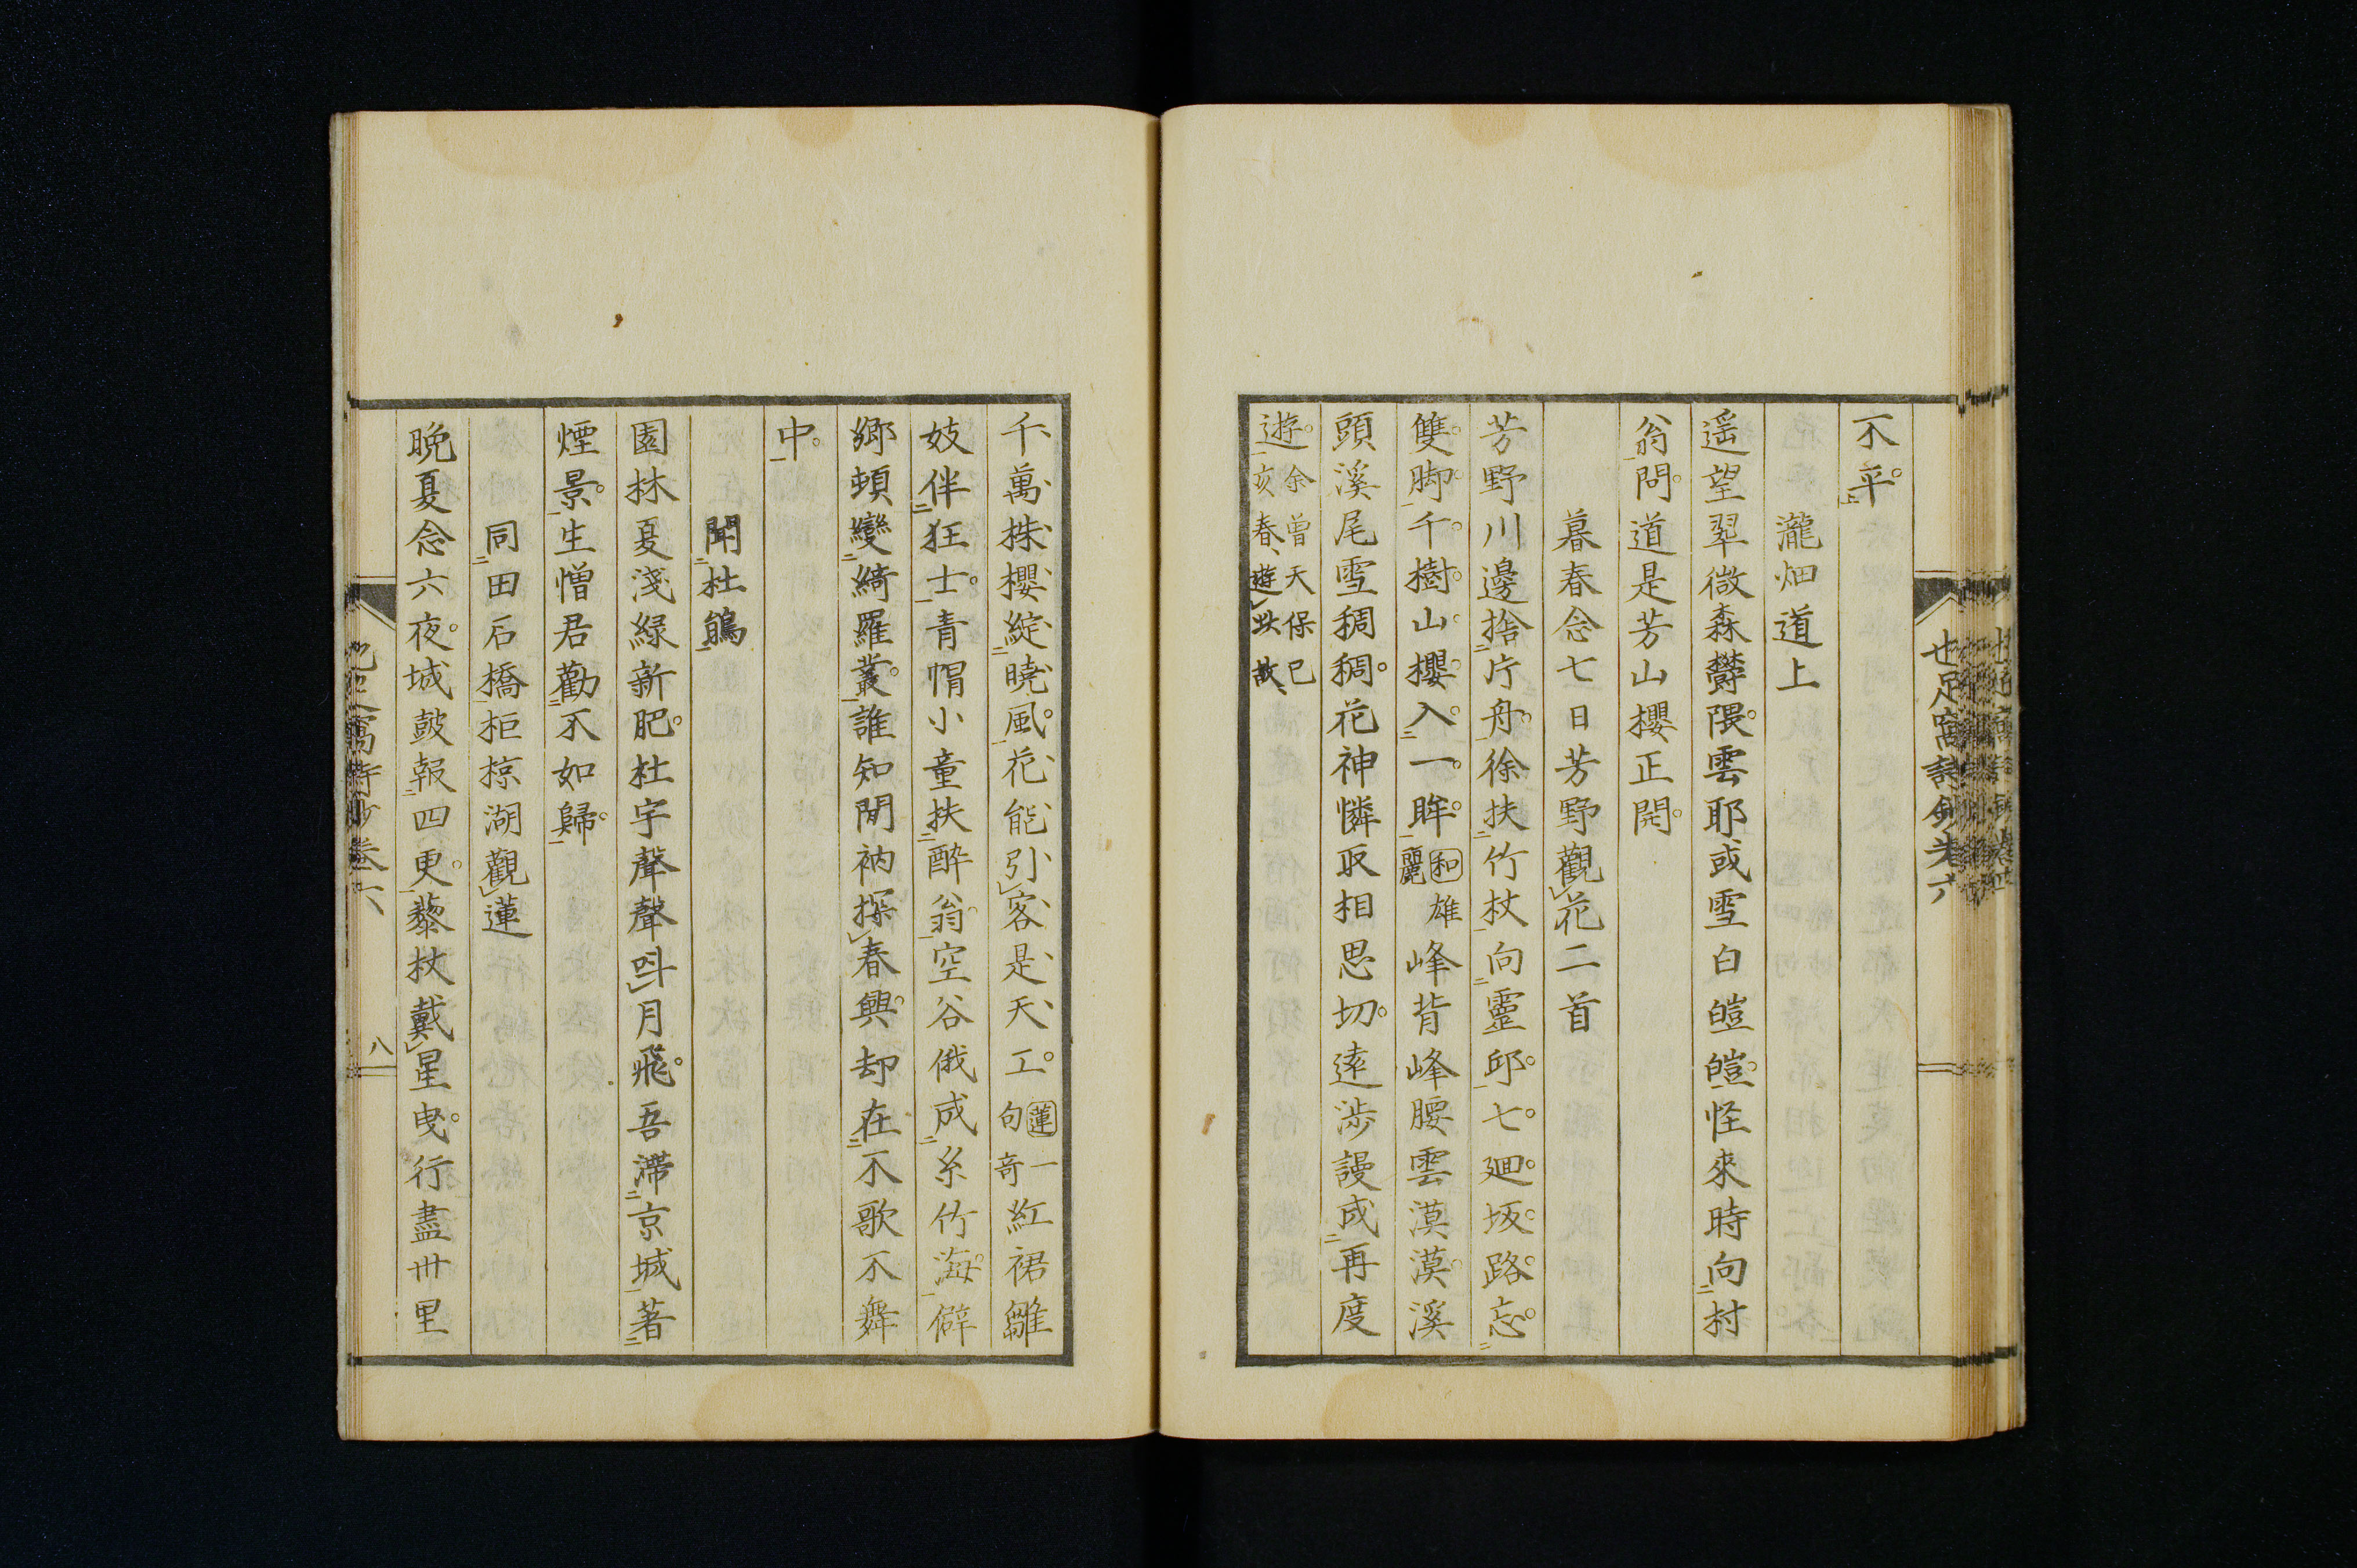 也足窩詩鈔卷六
不平
瀧畑道上
遥望翠微森欝隈雲耶或雪白皚皚怪來時向村
翁問道是芳山櫻正開
暮春念七日芳野觀花二首
芳野川邊捨片舟徐扶竹杖向靈邱七廻坂路忘
雙脚千樹山櫻入一眸和雄麗峰背峰腰雲漠漠溪
頭溪尾雪稠稠花神憐取相思切遠渉謾成再度
遊余曾天保已亥春遊此故
千萬株櫻綻曉風花能引客是天工蓮一句奇紅裙雛
妓伴狂士青帽小童扶醉翁空谷俄成糸竹海僻
鄉頓變綺羅叢誰知閒衲探春興却在不歌不舞
中
聞杜鵑
園林夏淺緑新肥杜宇聲聲呌月飛吾滯京城著
煙景生憎君勸不如歸
同田石橋柜椋湖觀蓮
晩夏念六夜城皷報四更藜杖戴星曳行盡卅里
八